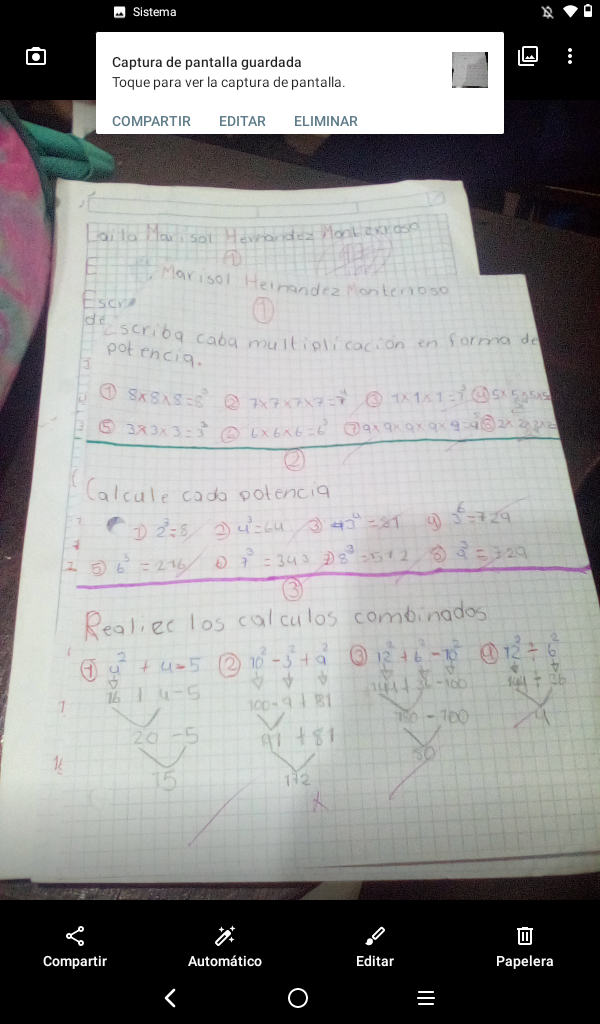 Sistema
Captura de pantalla guardada
Toque para ver la captura de pantalla.
COMPARTIR EDITAR ELIMINAR
Marisol Hernandez Monterroso
Marisol Hernandez Monterroso
①
Escriba caba multiplicación en forma de
potencia.
① 8×8×8=8³ ② 7×7×7×7=7⁴ ③ 1×1×1=1³ ④ 5×5×5×5
⑤ 3×3×3=3³ ⑥ 6×6×6=6³ ⑦ 9×9×9×9×9=9⁵ ⑧ 2×2×2×2
②
Calcule cada potencia
① 2³=8 ② 4³=64 ③ 3⁴=81 ④ 3⁶=729
⑤ 6³=216 ⑥ 7³=343 ⑦ 8³=512 ⑧ 9³=729
③
Realiec los calculos combinados
① 4²+4-5 ② 10²-3²+9² ③ 12²+6²-10² ④ 12²÷6²
16+4-5 100-9+81 144+36-100 144÷36
20-5 91+81 180-100 4
15 172 80
Compartir Automático Editar Papelera